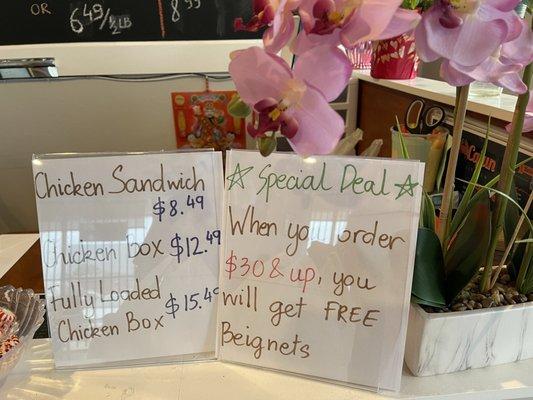 OR 6.49/½ LB 8
Chicken Sandwich
$8.49
Chicken Box $12.49
Fully Loaded
Chicken Box $15.49
☆ Special Deal ☆
When you order
$30 & up, you
will get FREE
Beignets